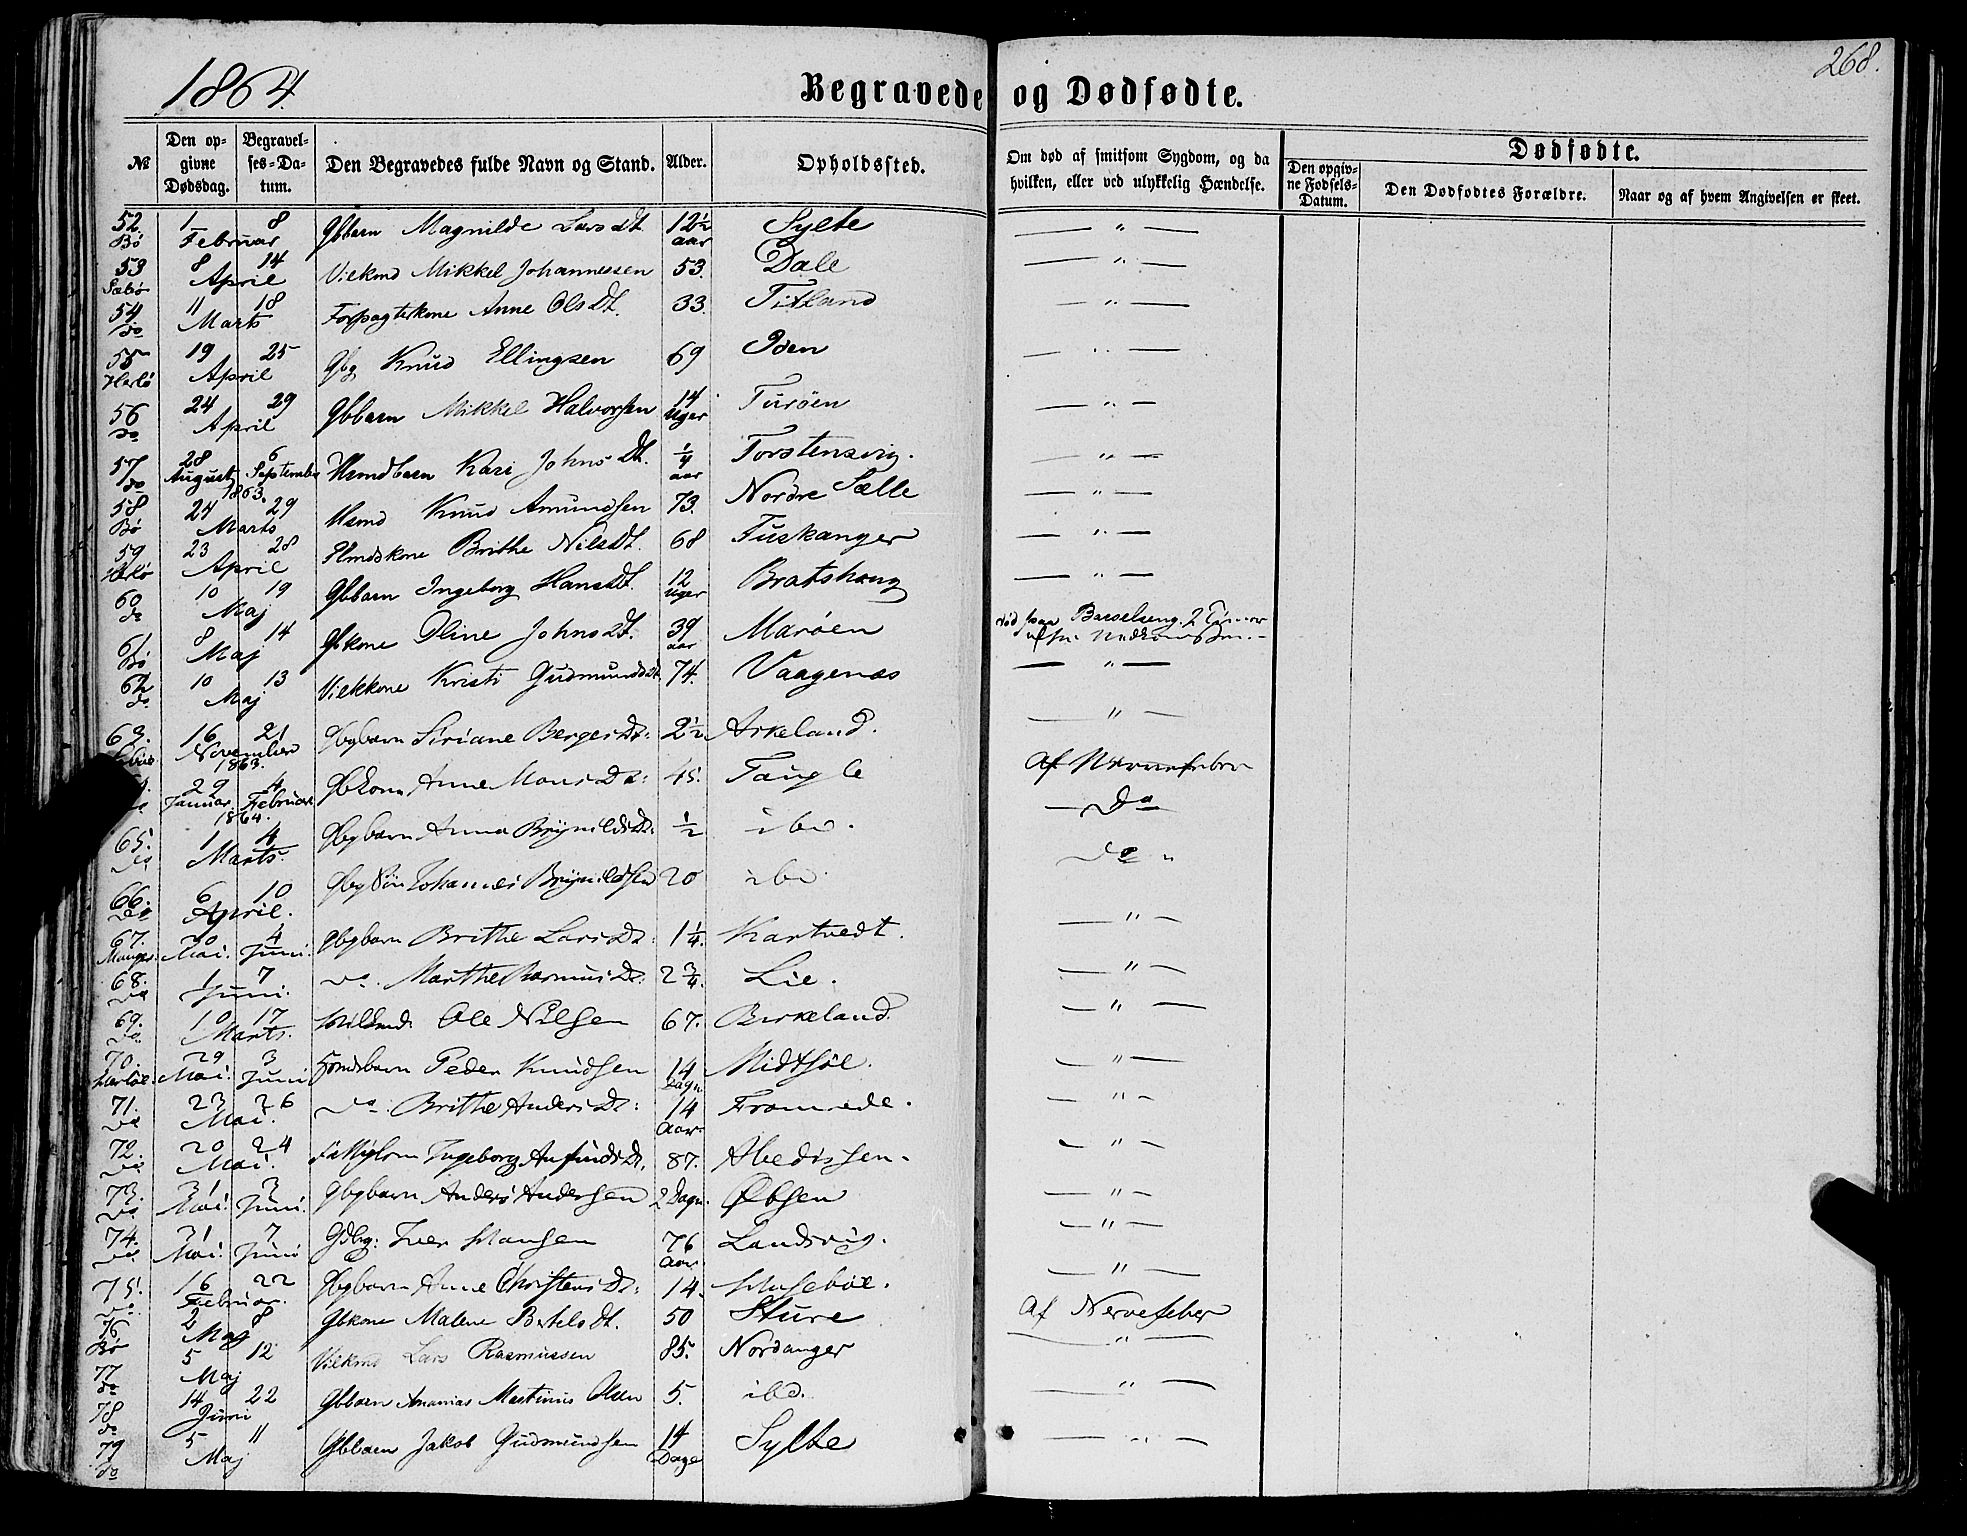 1864.
Begravede og Dødfødte.
268.
№
Den opgivne Dødsdag.
Begravelses-Datum.
Den Begravedes fulde Navn og Stand.
Alder.
Opholdssted.
Om død af smitsom Sygdom, og da hvilken, eller ved ulykkelig Hændelse.
Dødfødte.
Den opgivne Fødsels-Datum.
Den Dødfødtes Forældre.
Naar og af hvem Angivelsen er skeet.
52. Bø 1 8 Februar Gbbarn Magnilde Larsdt. 12½ aar Sylte — " —
53 Sæbø 8 14 April Vilkmd Mikkel Johannessen 53. Dale — " —
54 do 11 18 Marts Forpagterkone Anne Olsdt. 33. Titland — " —
55 Herlø 19 25 April Gbg Knud Ellingsen 69 Oen — " —
56 do 24 29 April Gbbarn Mikkel Halvorsen 14 Uger Turöen — " —
57 do 28 August 6 September 1863. Hsmdbarn Kari Johnsdt. ¼ aar Torstensvig. — " —
58 Bø 24 29 Marts Hsmd Knud Amundsen 73. Nordre Sælle — " —
59 Herlø 23 28 April Hmdskone Brithe Nilsdt. 68 Tuskanger — " —
60 do 10 19 Maj Gbbarn Ingeborg Hansdt. 12 Uger Bratshaug — " —
61 Bø 8 14 Maj Gbkone Oline Johnsdt. 39 aar Marøen død paa Barselseng 2 Timer
62 do 10 13 Maj Vilkkone Kristi Gudmundsdt 74. Vaagenæs — " —
63. 16 21 November 1863. Gbgbarn Siriane Bergesdt: 2½ Askeland. — " —
29 Januar 4 Februar 1864. Gbkone Anne Monsdt: 45. Tangle Af Nervefeber
65. do 1 4 Marts. Gbgbarn Anna Brynildsdt: ½ ibd. — do
66. do 6 10 April. Gbg Søn Johannes Brynildsen 20 ibd. do "
67. Manger 30 Mai. 4 Juni. Gbgbarn Brithe Larsdt: 1¼. Kartvedt. — " —
68. do 1 7 Juni. do. Marthe Rasmusdt: 2¾. Lie. — " —
69. do 10 17 Marts. Vilkmd: Ole Nilsen 67. Birkeland. — " —
70. Herløe 29 Mai. 3 Juni Hmdsbarn Peder Knudsen 14 Dage Midtsöe. — " —
71. do 23 26 Mai. do. Brithe Andersdt: 14 Aar Fromrede. — " —
72. do 20 24 Mai. Ingeborg Anfindsdt. 87. — " —
73. do 31 Mai. 3 Juni. Gbgbarn Anders Andersen 2 Dage. — " —
74. do 31 Mai. 7 Juni Gdbg: Iver Mansen 76 Aar Landsvig. — " —
75. do 16 22 Februar. Gbgbarn Anne Christensdt: 14. Husebøe. — " —
76 Bø 2 8 Maj Gbkone Malene Bertelsdt. 50 Sture Af Nervefeber
77 do 5 12 Maj Vilkmd Lars Rasmussen 85. Nordanger — " —
78 do 14 22 Juni Gbbarn Ananias Martinus Olsen 5. ibd. — " —
79 do 5 11 Maj Gbbarn Jakob Gudmundsen 14 Dage Sylte — " —